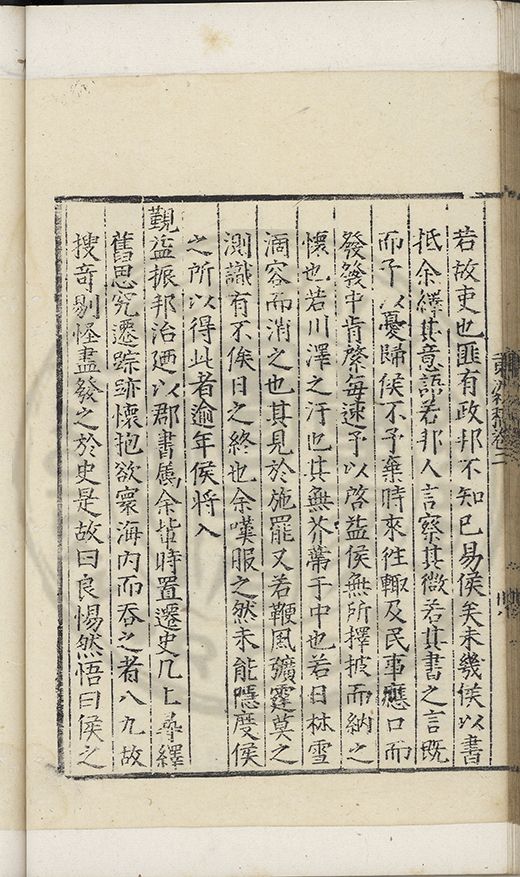 若故吏也匪有政邦不知已易侯矣未幾侯以書
抵余繹其意語若邦人言察其微若其書之言既
而予以憂歸侯不予棄時來往輙及民事應口而
發發中肯綮每速予以啓益侯無所擇披而納之
懷也若川澤之汙也其無芥蔕于中也若日林雪
涸容而消之也其見於施罷又若鞭風彍霆莫之
測識有不俟日之終也余嘆服之然未能隱度侯
之所以得此者逾年侯將入
覲益振邦治廼以郡書屬余皆時置遷史几上尋繹
舊思究遷踪跡懷抱欲寰海内而吞之者八九故
搜奇剔怪盡發之於史是故曰良惕然悟曰侯之